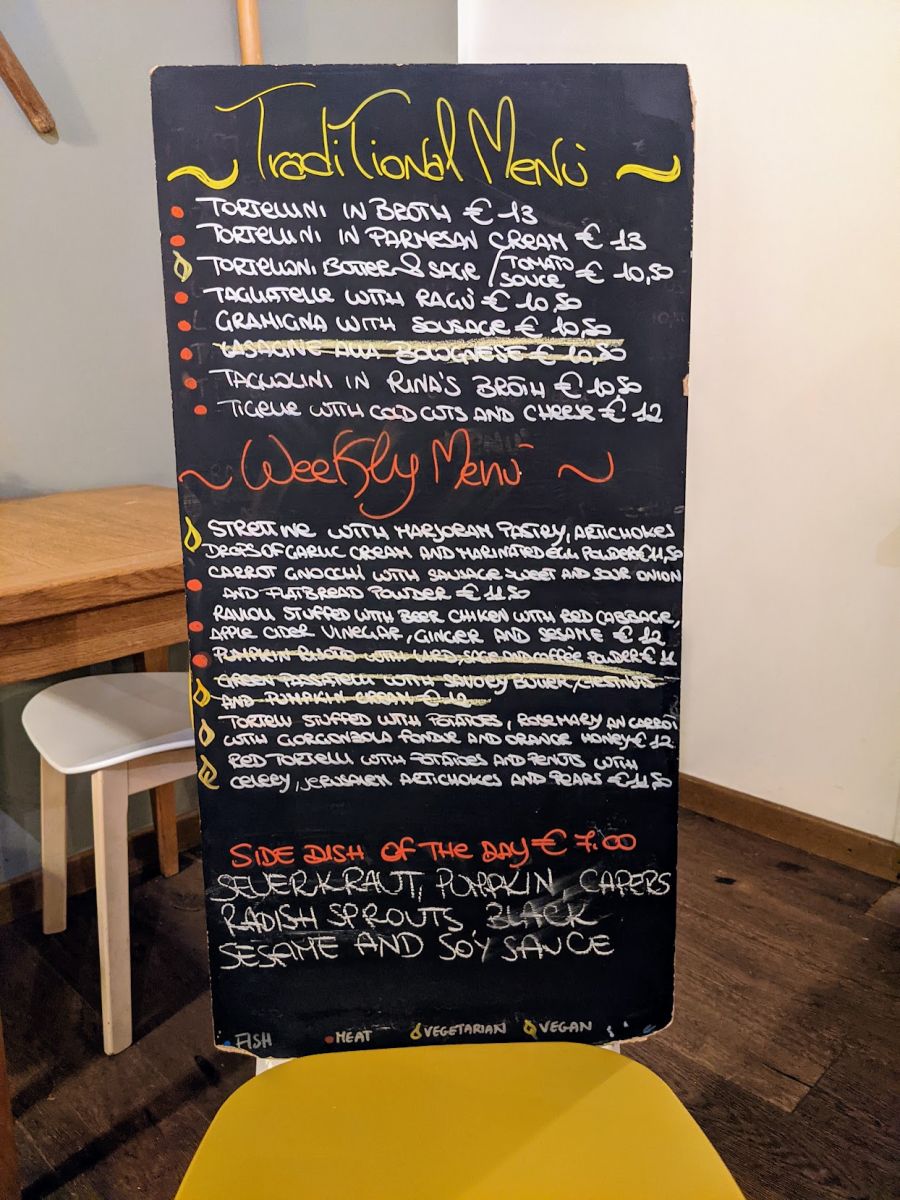 ~ Traditional Menù ~
TORTELLINI IN BROTH € 13
TORTELLINI IN PARMESAN CREAM € 13
TORTELLONI BUTTER & SAGE / TOMATO SOUCE € 10,50
TAGLIATELLE WITH RAGÙ € 10,50
GRAMIGNA WITH SOUSAGE € 10,50
LASAGNE ALLA BOLOGNESE € 10,50
TAGLIOLINI IN RINA'S BROTH € 10,50
TIGELLE WITH COLD CUTS AND CHEESE € 12
~ Weekly Menù ~
STRETTINE WITH MARJORAM PASTRY, ARTICHOKES
DROPS OF GARLIC CREAM AND MARINATED EGG POWDER € 11,50
CARROT GNOCCHI WITH SAUSAGE SWEET AND SOUR ONION
AND FLATBREAD POWDER € 11.50
RAVIOLI STUFFED WITH BEER CHIKEN WITH RED CABBAGE,
APPLE CIDER VINEGAR, GINGER AND SESAME € 12
PUMPKIN RISOTO WITH LARD, SAGE AND COFFEE POWDER € 11
GREEN PASSATELLI WITH SAVORY BUTTER, CHESTNUTS
AND PUMPKIN CREAM € 12
TORTELLI STUFFED WITH POTATOES, ROSEMARY AN CARROT
WITH GORGONZOLA FONDUE AND ORANGE HONEY € 12
RED TORTELLI WITH POTATOES AND PENUTS WITH
CELERY, JERUSALEM ARTICHOKES AND PEARS € 11,50
SIDE DISH OF THE DAY € 7.00
SEUERKRAUT, PUMPKIN CAPERS
RADISH SPROUTS BLACK
SESAME AND SOY SAUCE
FISH MEAT VEGETARIAN VEGAN